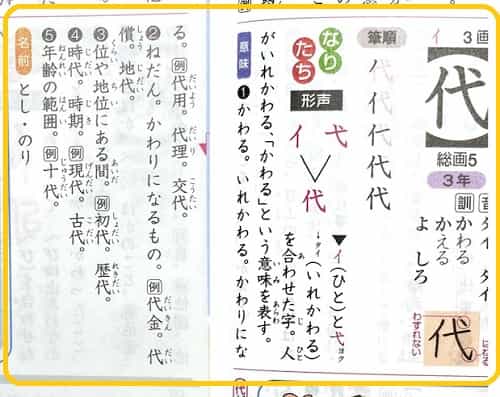 3画
イ
代
総画5
3年
音
ダイ タイ
訓
かわる
かえる
よ しろ
代
わすれない
はねる
筆順
イ 代
イ
仁
代
代
なり
たち
形声
イ 弋
代
▼イ(ひと)と弋ヨク
→ダイ(いれかわる)
を合わせた字。人
がいれかわる、「かわる」という意味を表す。
意味
❶かわる。いれかわる。かわりにな
る。例代用。代理。交代。
❷ねだん。かわりになるもの。例代金。代
償。地代。
❸位や地位にある間。例初代。歴代。
❹時代。時期。例現代。古代。
❺年齢の範囲。例十代。
名前
とし・のり